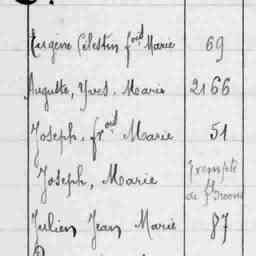 Eugène Célestin frois Marie 69
Auguste, Yves, Marie 2166
Joseph, frois Marie 51
Joseph, Marie Exempté
de
Julien Jean Marie 87